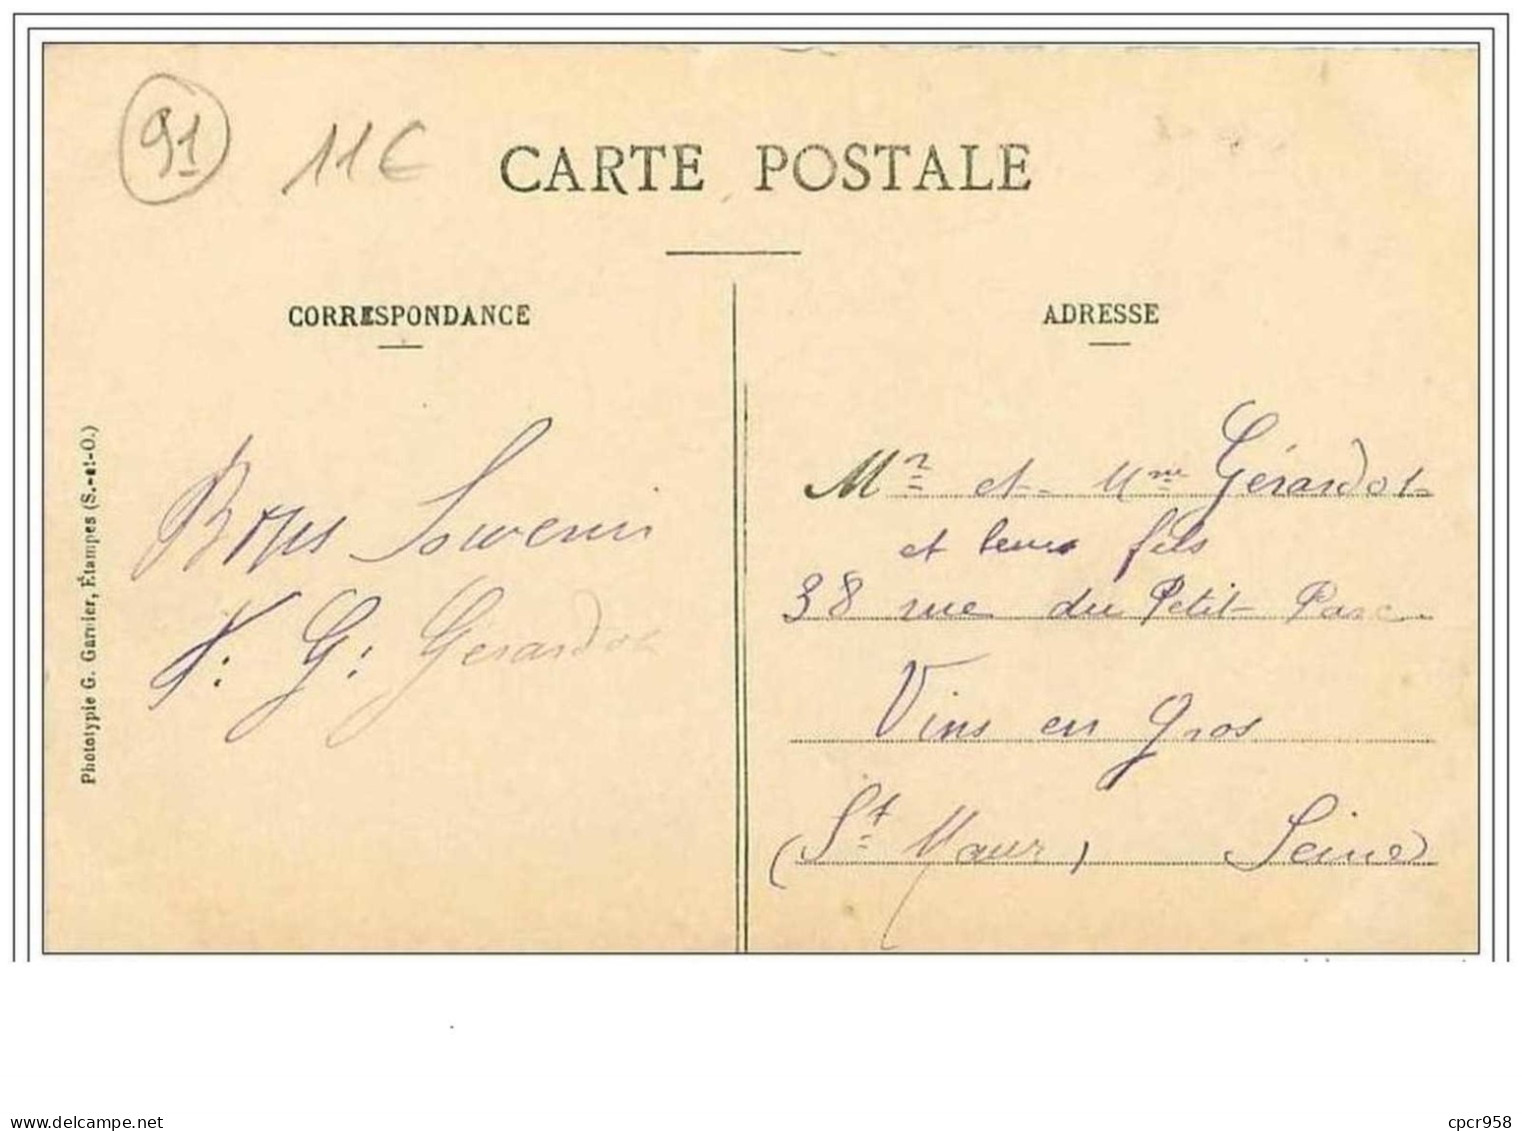 91 11€
CARTE POSTALE
CORRESPONDANCE
ADRESSE
Phototypie G. Garnier, Étampes (S.-et-O.)
Bons Souvenir
G. Gerardot
Mr et Mme Gérardot
et leurs fils
38 rue du Petit Parc
Vins en Gros
(St Maur) Seine
delcampe.net
cpcr958